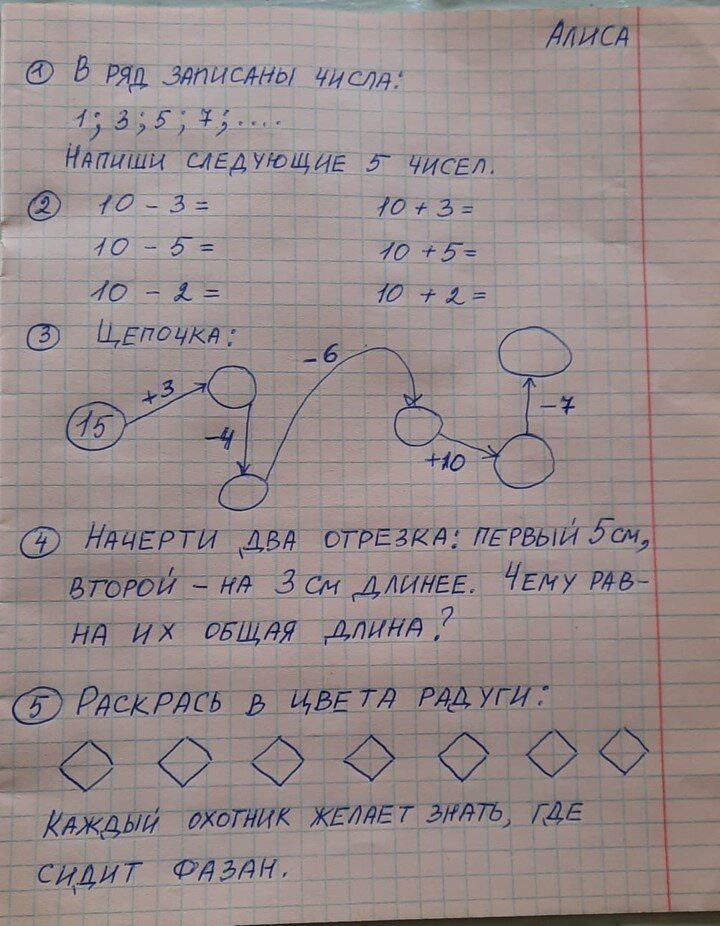 АЛИСА
① В РЯД ЗАПИСАНЫ ЧИСЛА:
1; 3; 5; 7; ....
НАПИШИ СЛЕДУЮЩИЕ 5 ЧИСЕЛ.
② 10 - 3 = 10 + 3 =
10 - 5 = 10 + 5 =
10 - 2 = 10 + 2 =
③ ЦЕПОЧКА:
15 +3 -4 -6 +10 -7
④ НАЧЕРТИ ДВА ОТРЕЗКА: ПЕРВЫЙ 5 СМ,
ВТОРОЙ - НА 3 СМ ДЛИНЕЕ. ЧЕМУ РАВ-
НА ИХ ОБЩАЯ ДЛИНА?
⑤ РАСКРАСЬ В ЦВЕТА РАДУГИ:
КАЖДЫЙ ОХОТНИК ЖЕЛАЕТ ЗНАТЬ, ГДЕ
СИДИТ ФАЗАН.